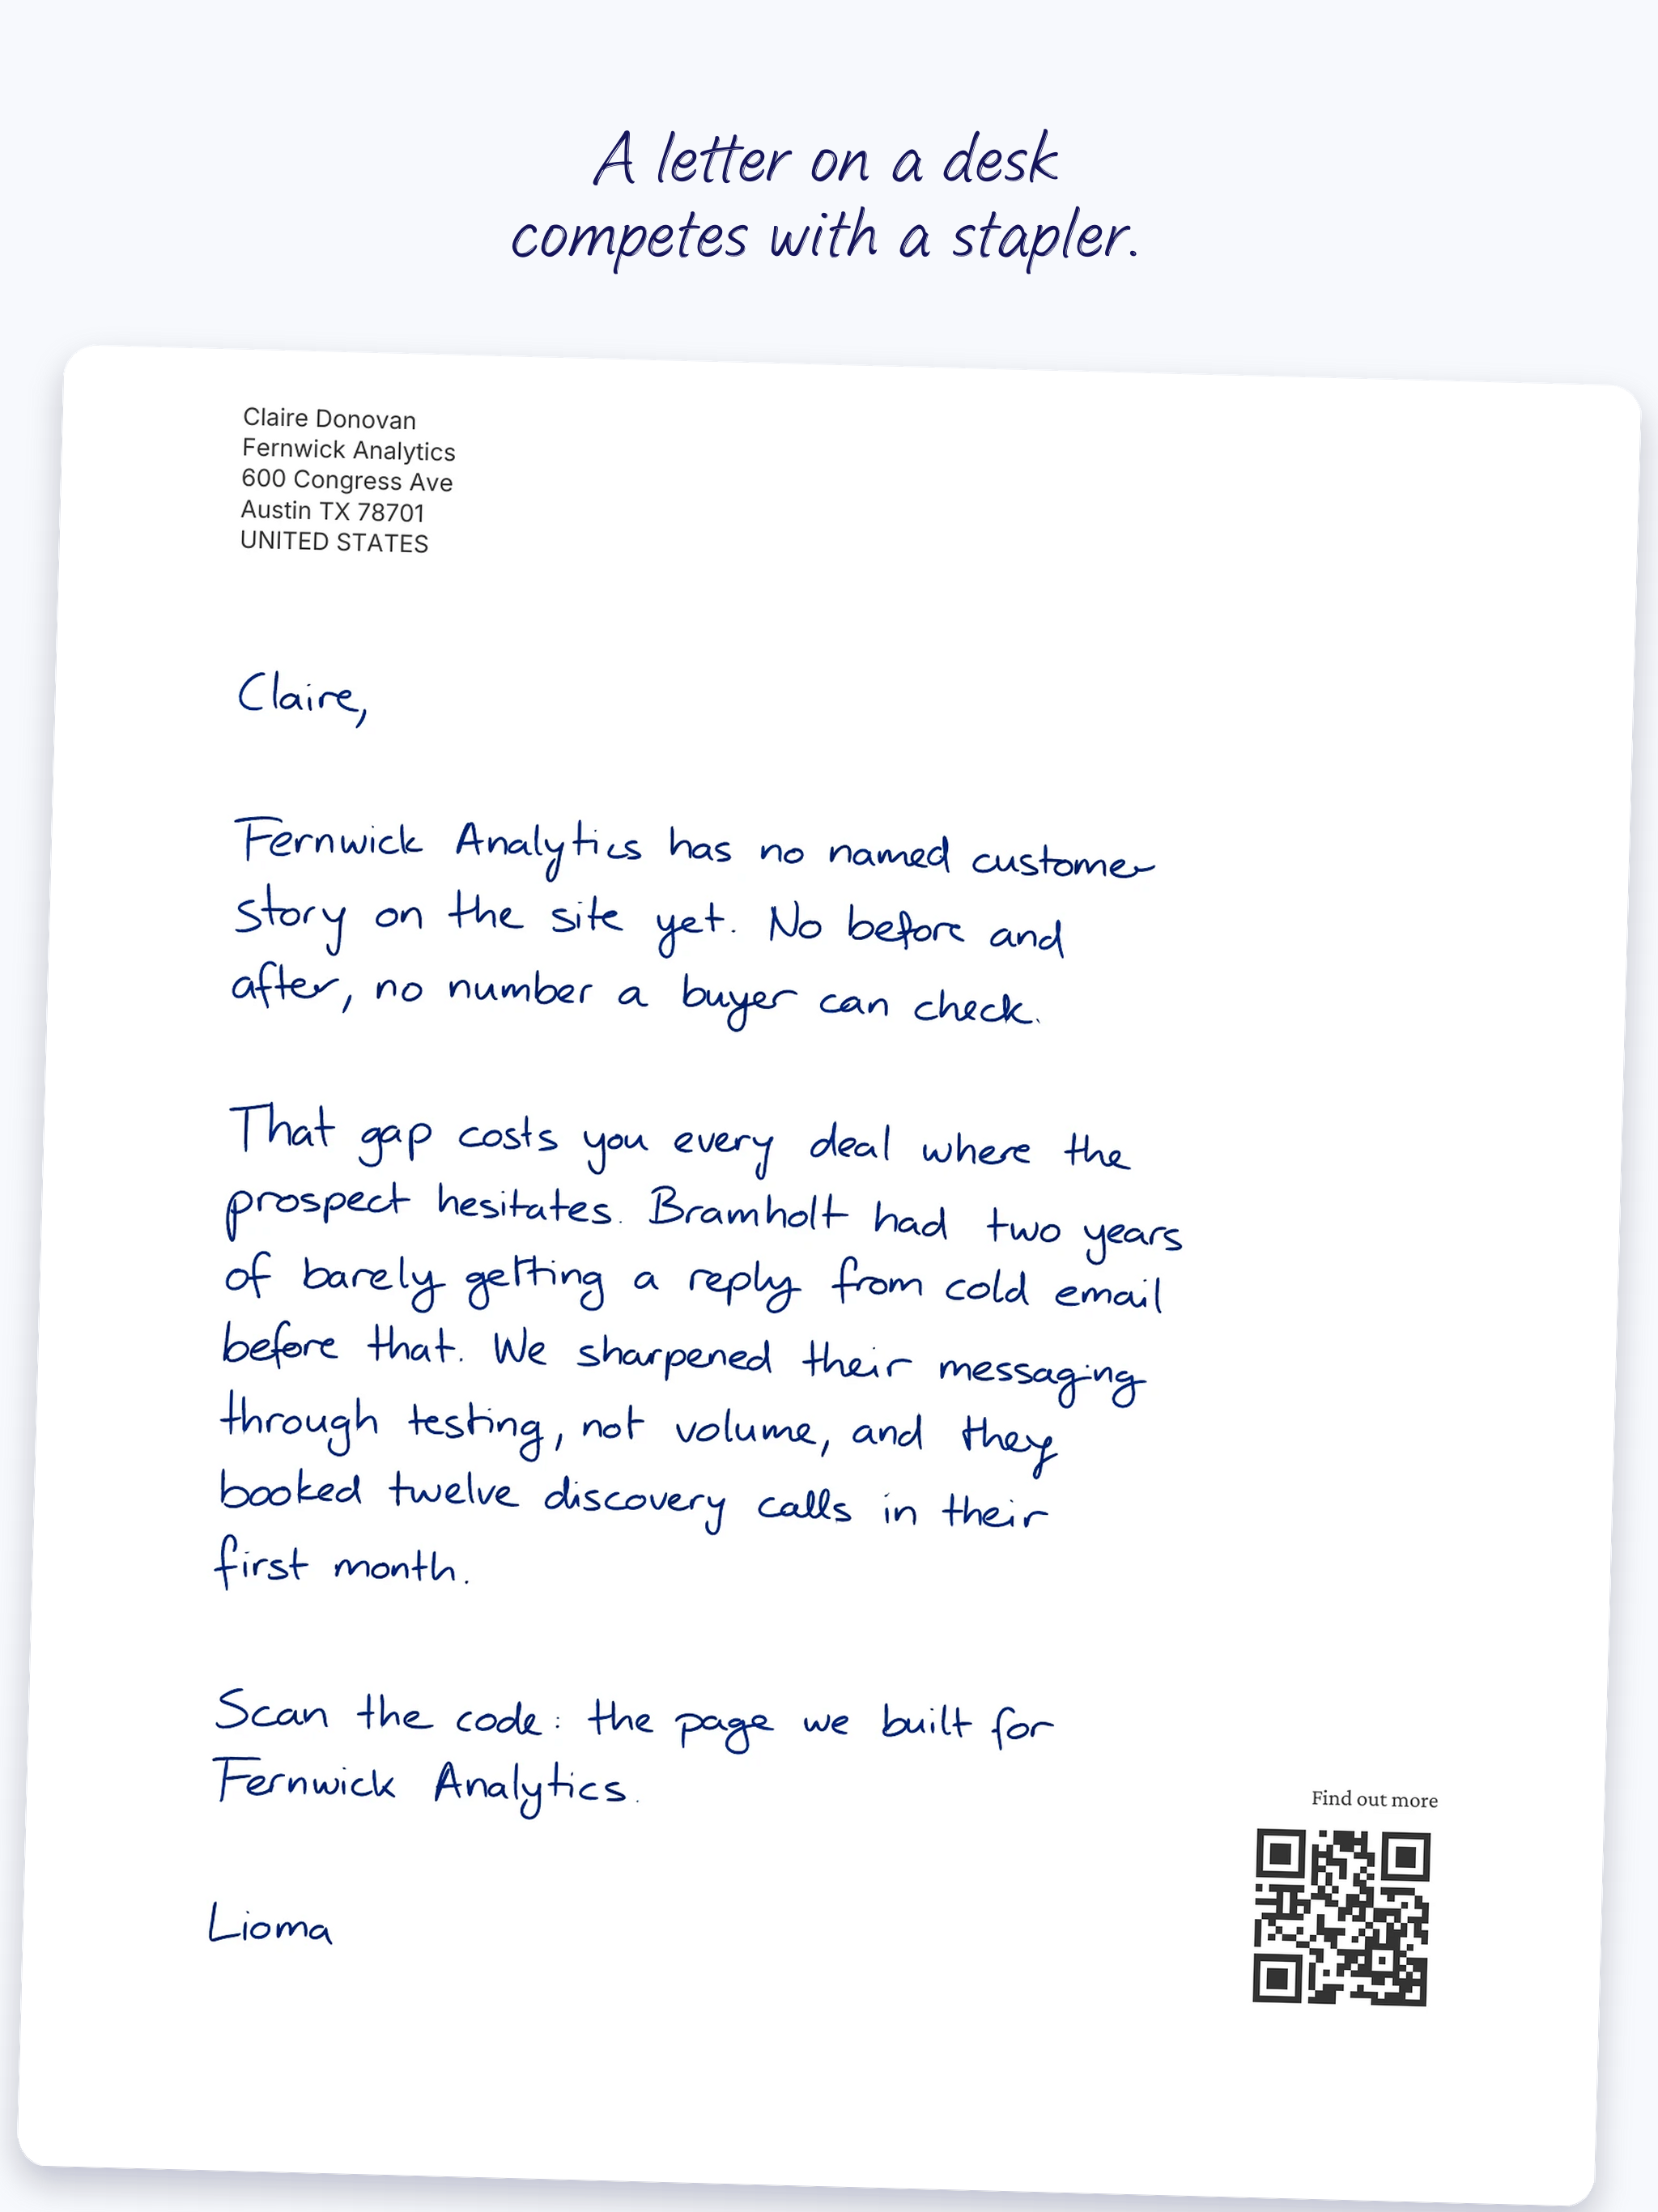 A letter on a desk
competes with a stapler.
Claire Donovan
Fernwick Analytics
600 Congress Ave
Austin TX 78701
UNITED STATES
Claire,
Fernwick Analytics has no named customer
story on the site yet. No before and
after, no number a buyer can check.
That gap costs you every deal where the
prospect hesitates. Bramholt had two years
of barely getting a reply from cold email
before that. We sharpened their messaging
through testing, not volume, and they
booked twelve discovery calls in their
first month.
Scan the code: the page we built for
Fernwick Analytics.
Find out more
Lioma